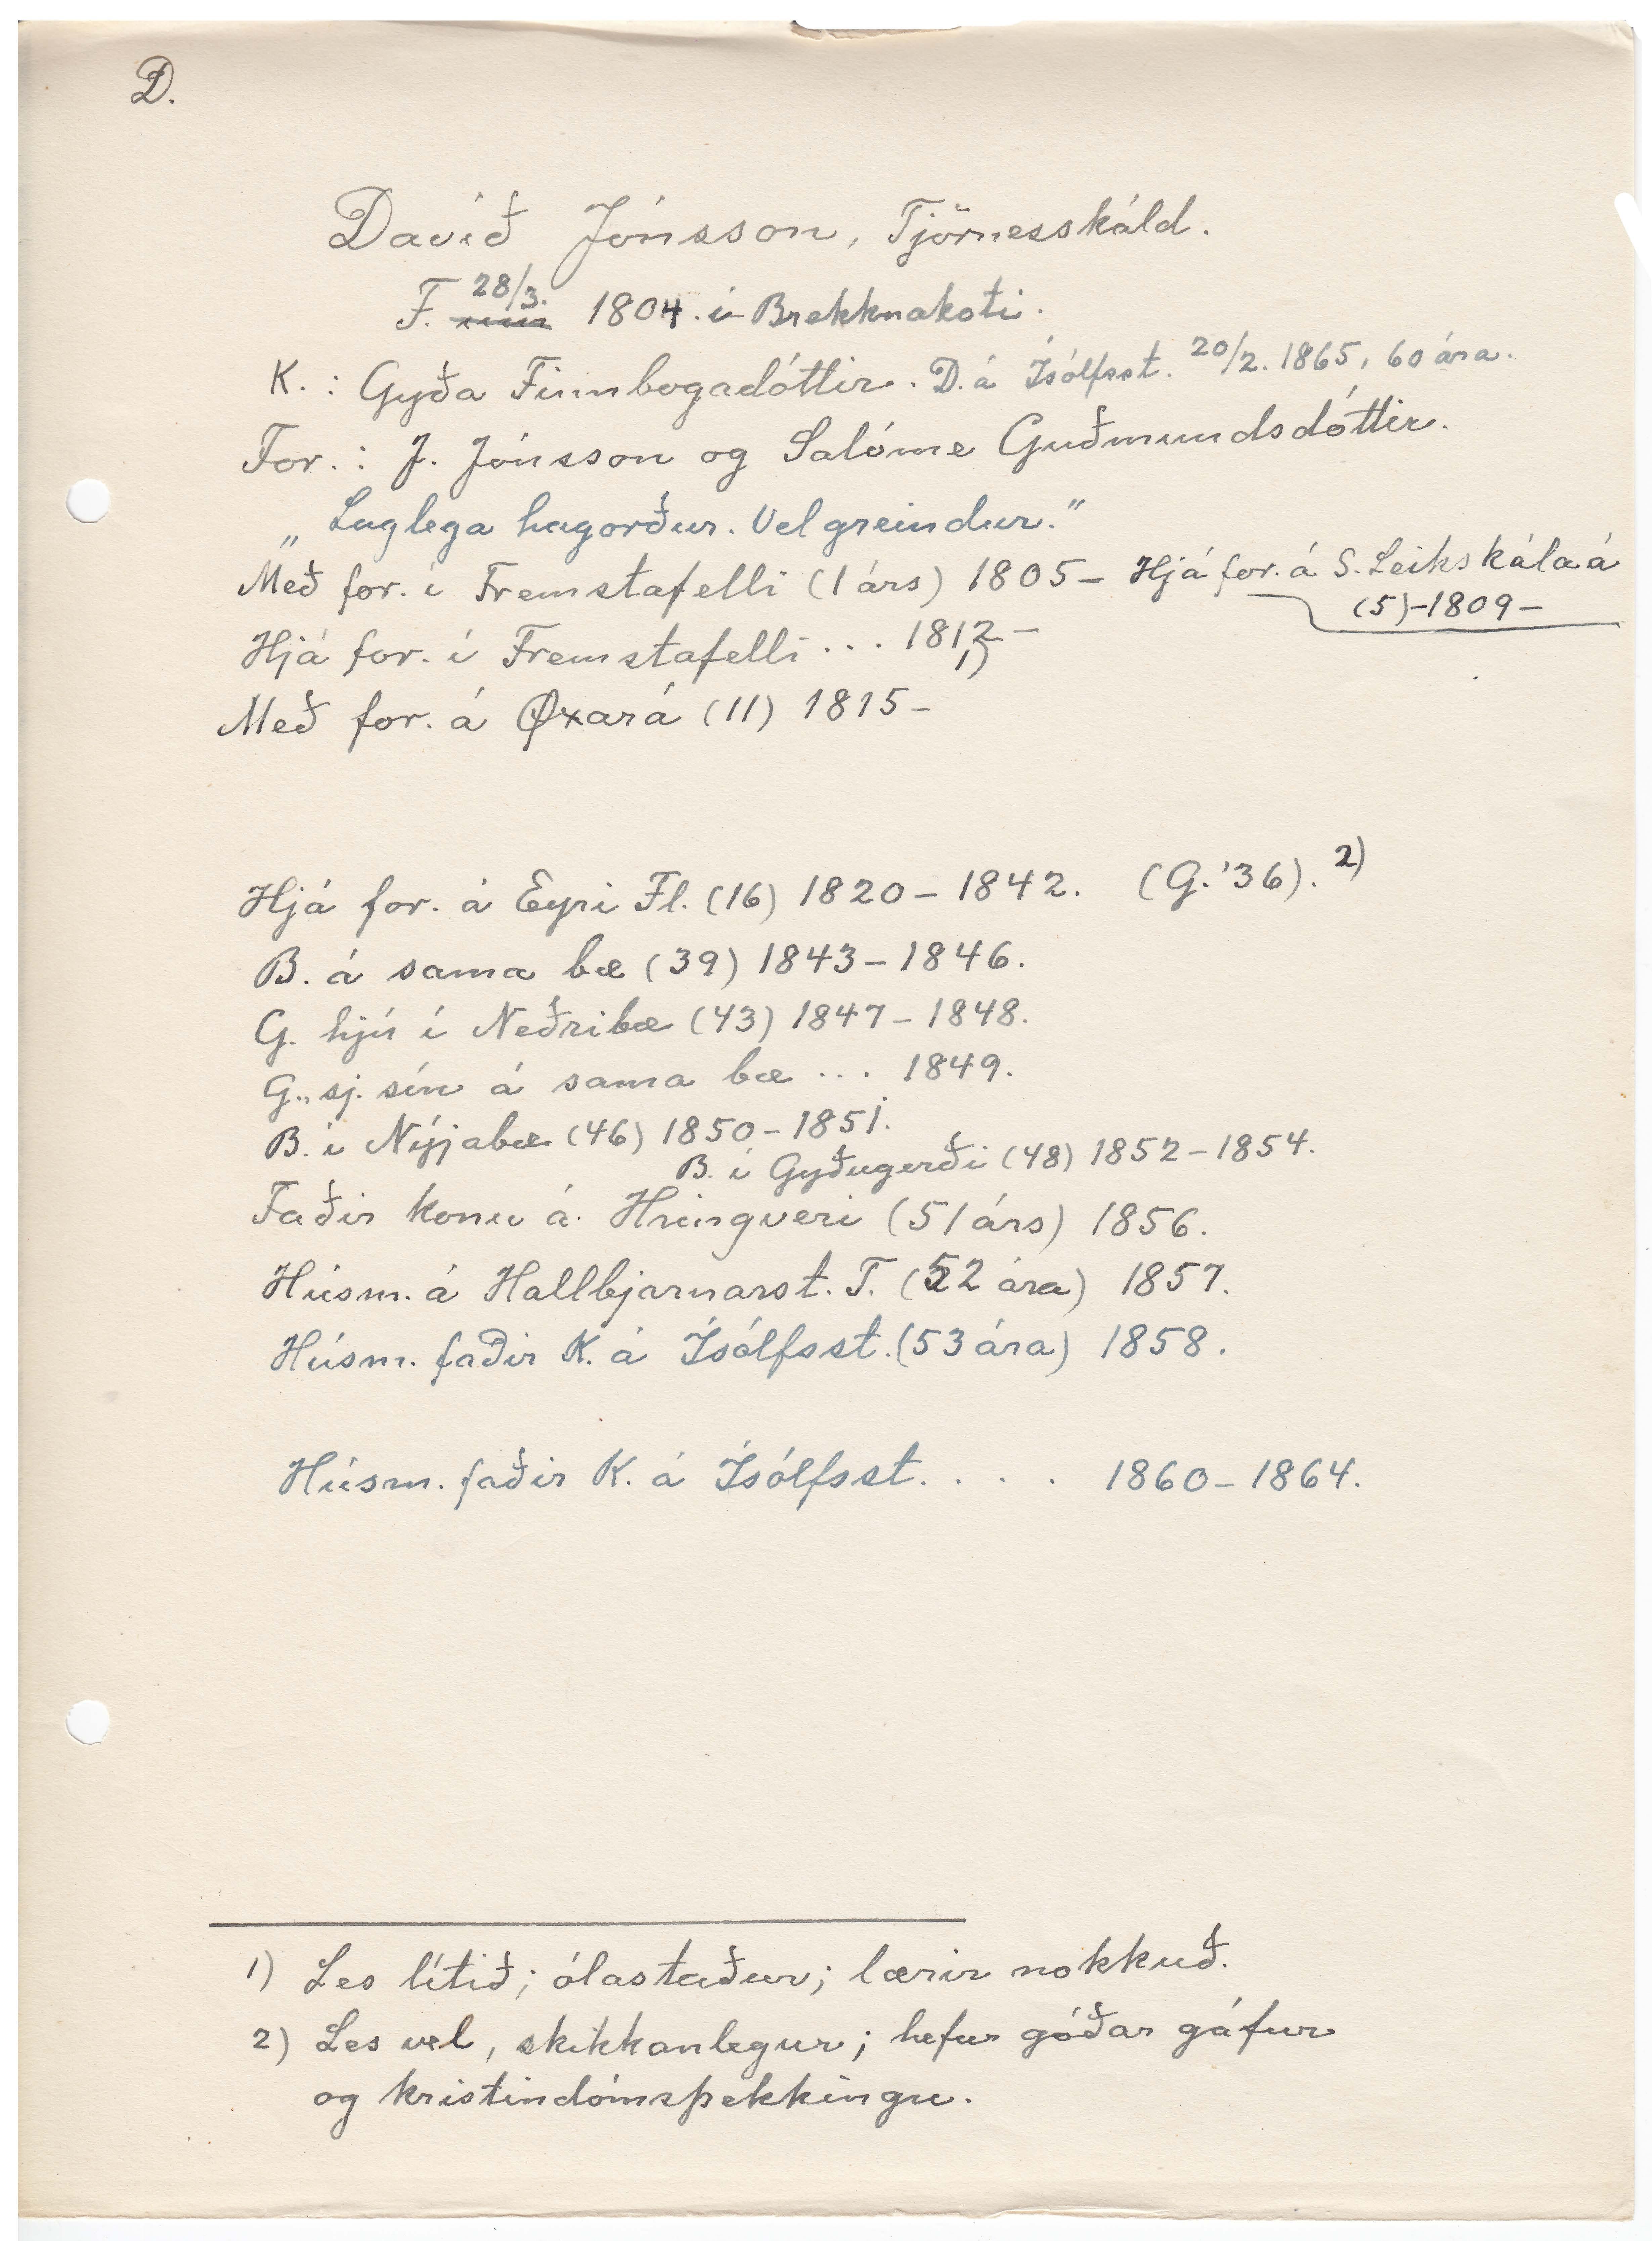 D.
Davíð Jónsson, Tjörnesskáld.
F. 28/3. 1804. í Brekknakoti.
K.: Gyða Finnbogadóttir. D. á Ísólfsst. 20/2. 1865, 60 ára.
For.: J. Jónsson og Salóme Guðmundsdóttir.
„Laglega hagorður. Vel greindur.”
Með for. í Fremstafelli (1 árs) 1805- Hjá for. á S. Leikskálaá
(5)-1809-
Hjá for. í Fremstafelli ... 1812 - 1)
Með for. á Øxará (11) 1815-
Hjá for. á Eyri Fl. (16) 1820-1842. (G. '36). 2)
B. á sama bæ (39) 1843-1846.
G. hjú í Neðribæ (43) 1847-1848.
G., sj. sín á sama bæ ... 1849.
B. í Nýjabæ (46) 1850-1851.
B. í Gyðugerði (48) 1852-1854.
Faðir konu á Hringveri (51 árs) 1856.
Húsm. á Hallbjarnarst. T. (52 ára) 1857.
Húsm. faðir K. á Ísólfsst. (53 ára) 1858.
Húsm. faðir K. á Ísólfsst. . . . 1860-1864.
1) Les lítið; ólastaður; lærir nokkuð.
2) Les vel, skikkanlegur; hefur góðar gáfur
og kristindómsþekkingu.